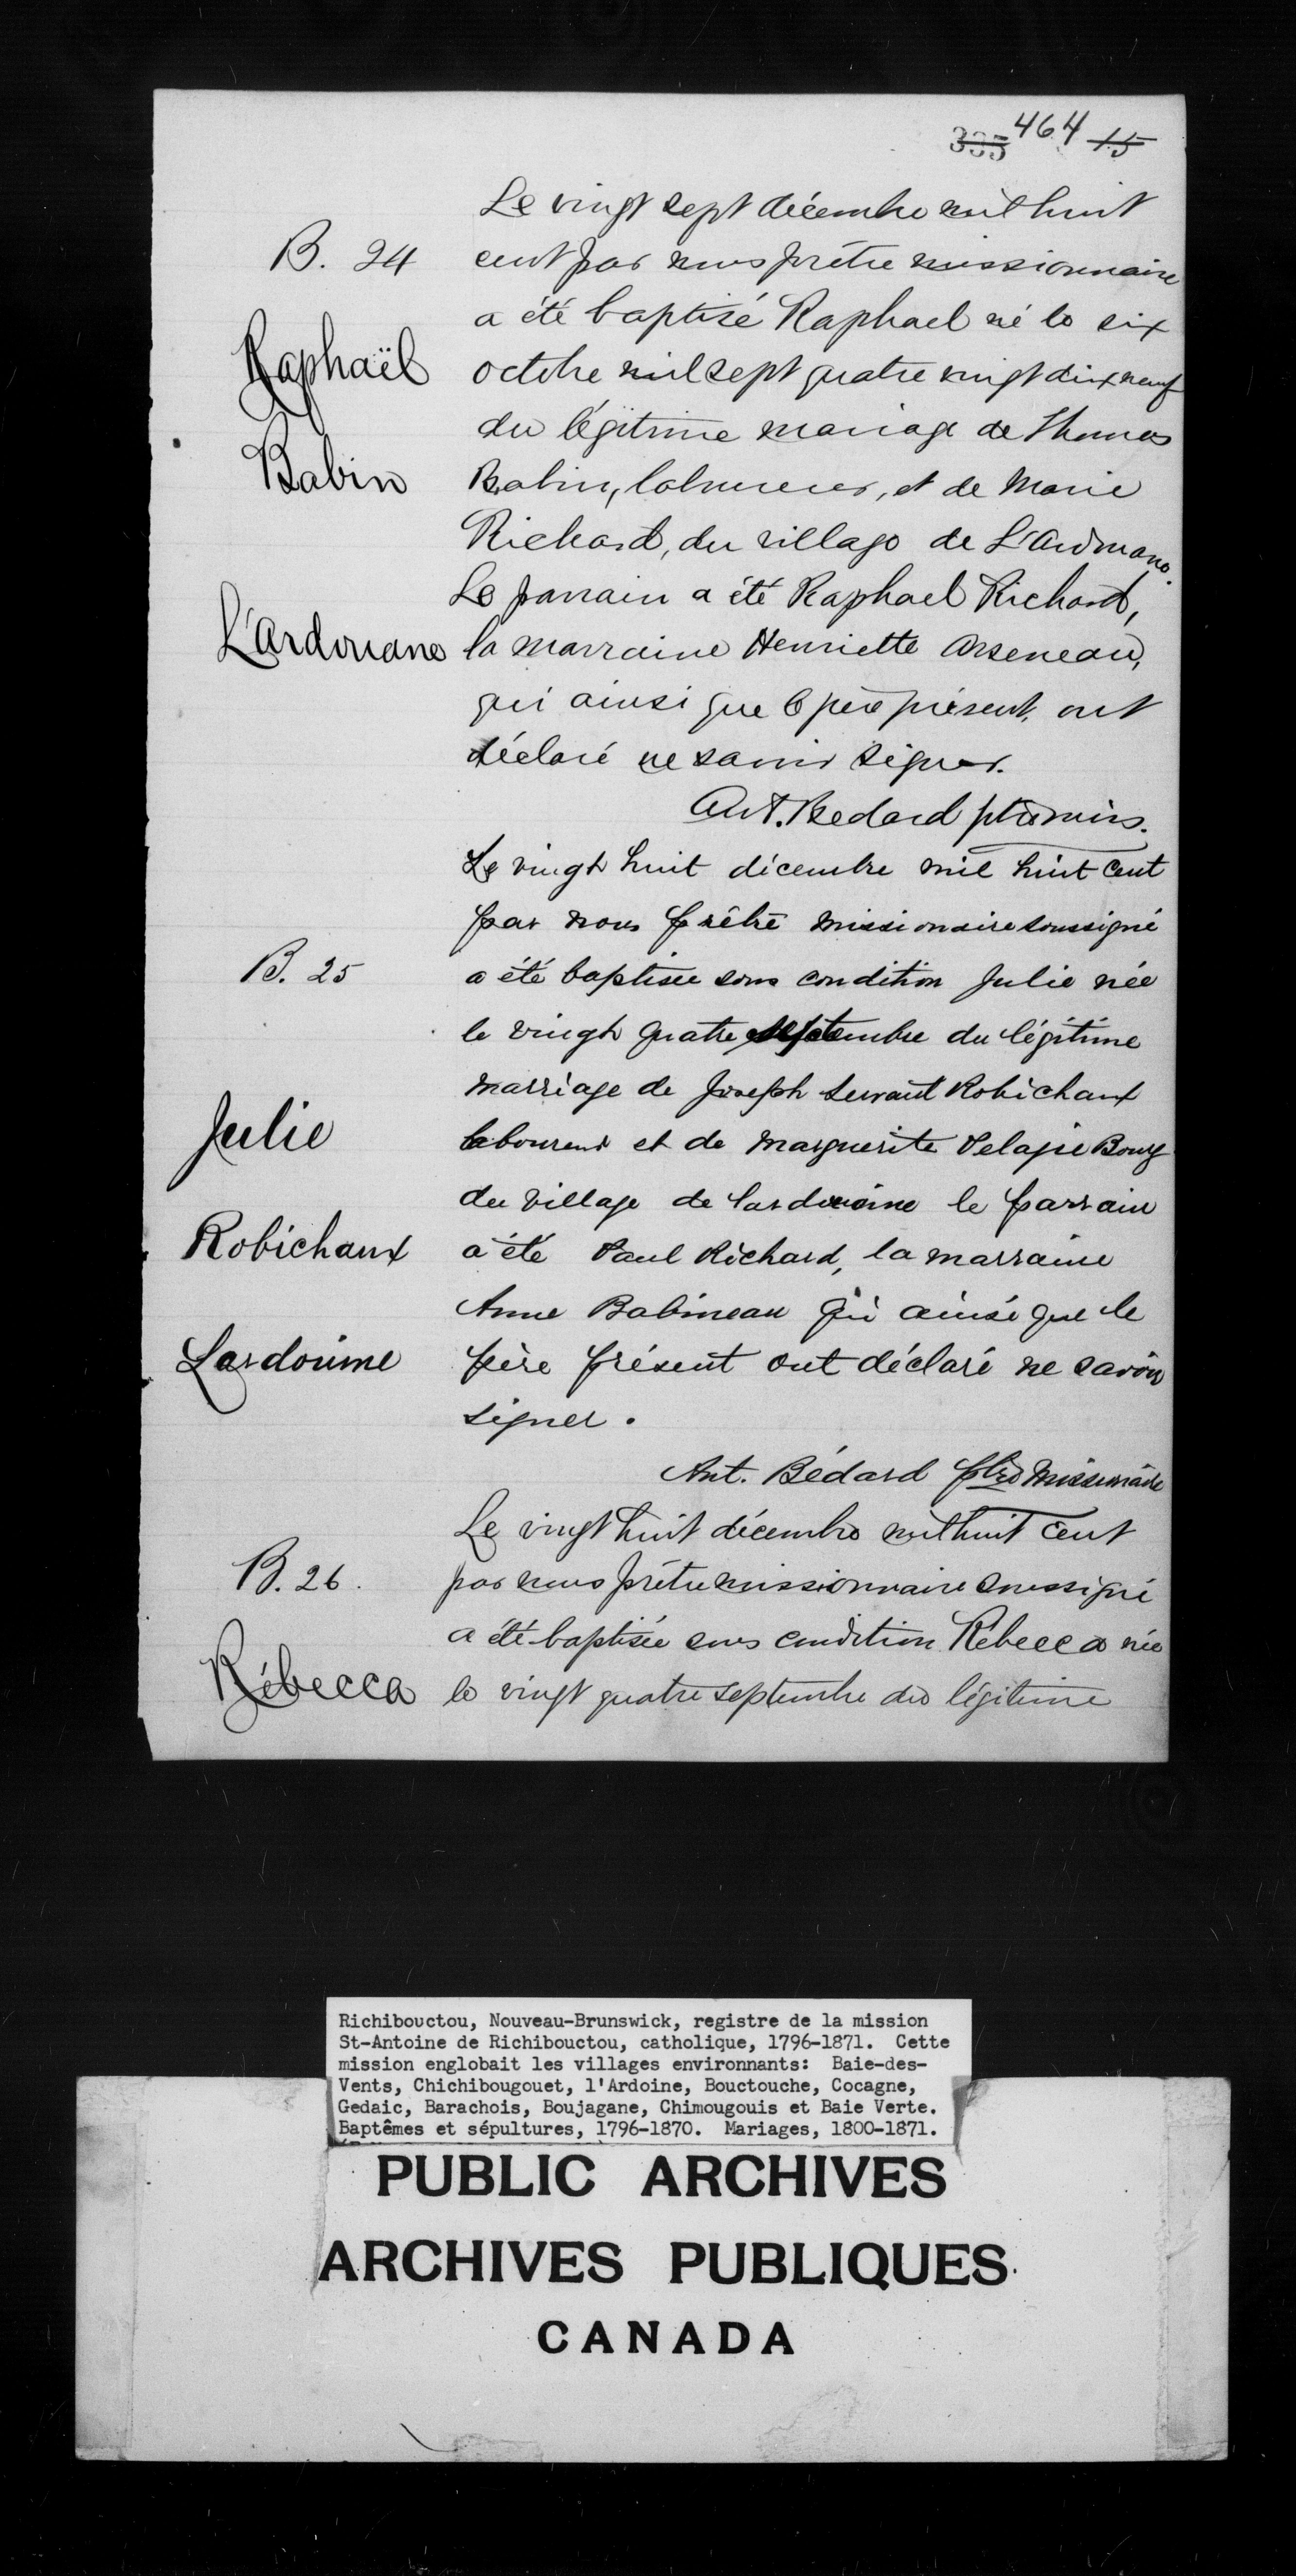 335 464 15
Le vingt sept décembre mil huit
B. 24 cent par nous prêtre missionnaire
a été baptisé Raphael né le six
Raphaël octobre mil sept quatre vingt dix neuf
du légitime mariage de Thomas
Babin Babin, laboureur, et de Marie
Richard, du village de L'Ardouane.
Le parrain a été Raphael Richard,
L'Ardouane la marraine Henriette Arseneau,
qui ainsi que le père présent, ont
déclaré ne savoir signer.
Ant. Bedard ptre miss.
Le vingt huit décembre mil huit cent
par nous prêtre missionaire soussigné
B. 25 a été baptisée sous condition Julie née
le vingt quatre septembre du légitime
marriage de Joseph Servant Robichaux
Julie laboureur et de Marguerite Pelagie Bourg
du village de lardouaine le parrain
Robichaux a été Paul Richard, la marraine
Anne Babineau qui ainsi que le
Lardouine père présent ont déclaré ne savoir
signer.
Ant. Bédard ptre Missionaire
Le vingt huit décembre mil huit cent
B. 26. par nous prêtre missionnaire soussigné
a été baptisée sous condition Rébecca née
Rébecca le vingt quatre septembre du légitime
Richibouctou, Nouveau-Brunswick, registre de la mission
St-Antoine de Richibouctou, catholique, 1796-1871. Cette
mission englobait les villages environnants: Baie-des-
Vents, Chichibougouet, l'Ardoine, Bouctouche, Cocagne,
Gedaic, Barachois, Boujagane, Chimougouis et Baie Verte.
Baptêmes et sépultures, 1796-1870. Mariages, 1800-1871.
PUBLIC ARCHIVES
ARCHIVES PUBLIQUES
CANADA